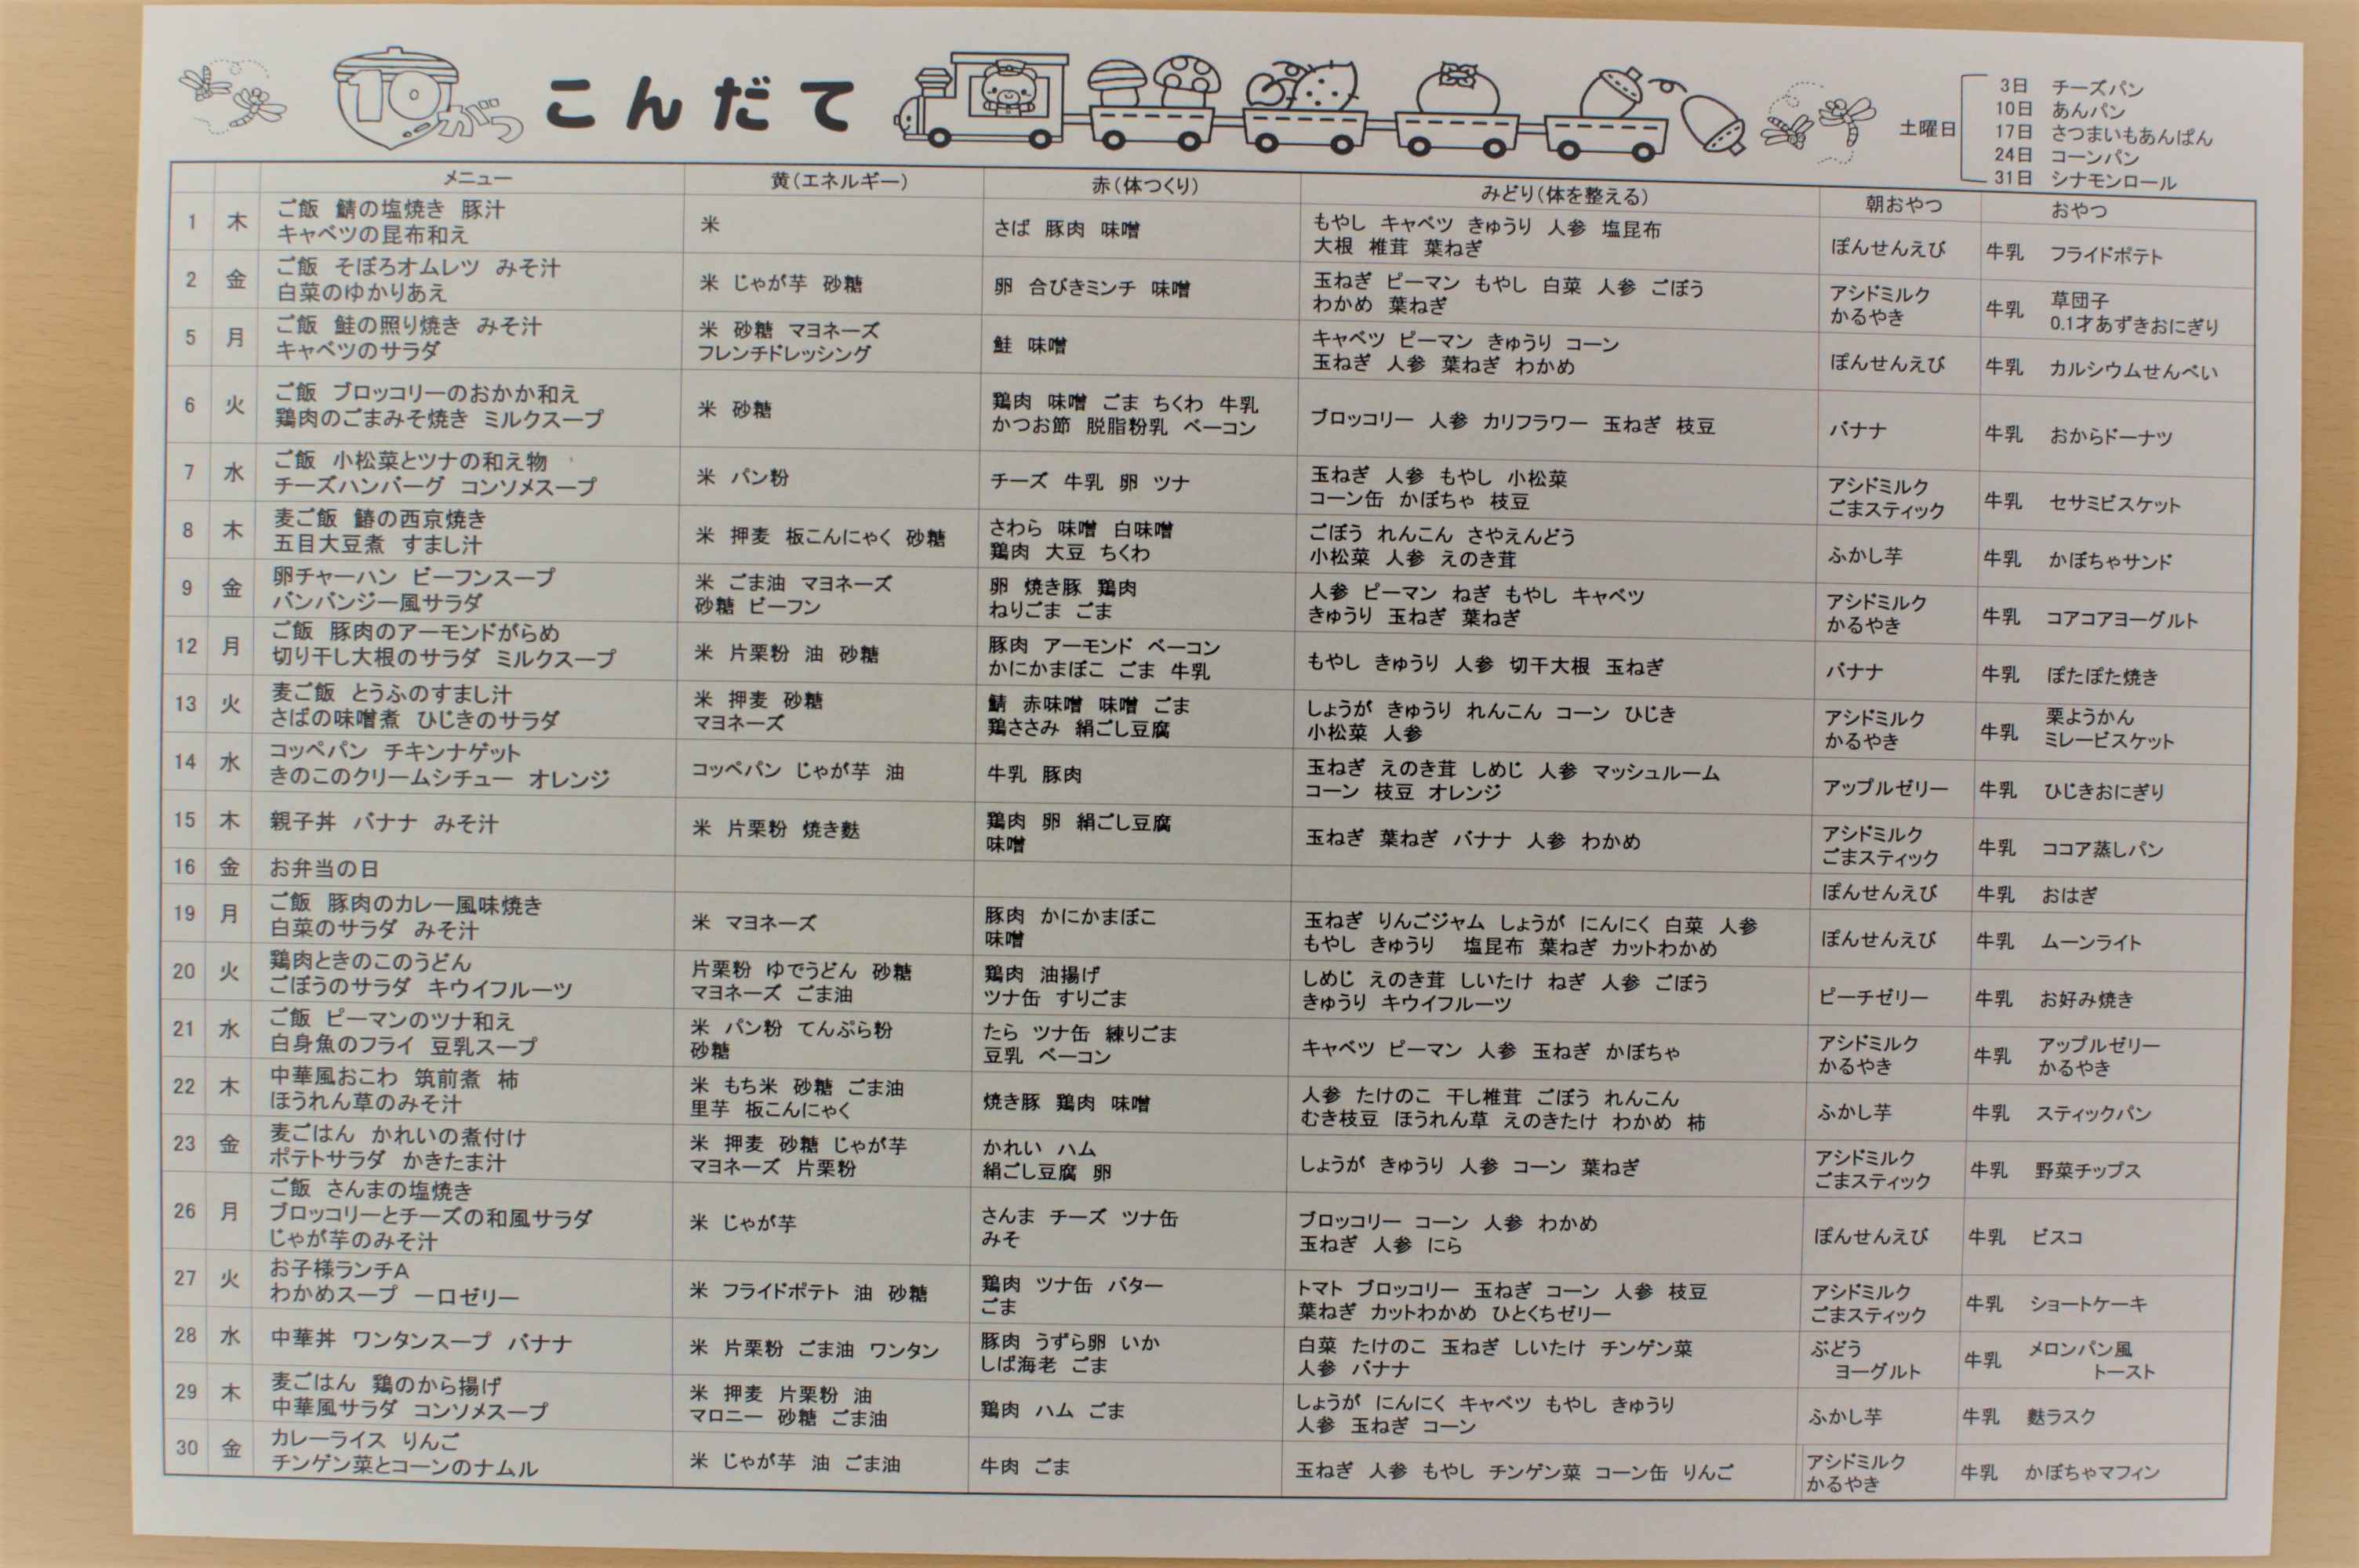 10がつ こんだて
土曜日
3日 チーズパン
10日 あんパン
17日 さつまいもあんぱん
24日 コーンパン
31日 シナモンロール
メニュー 黄(エネルギー) 赤(体つくり) みどり(体を整える) 朝おやつ おやつ
1 木 ご飯 鯖の塩焼き 豚汁
キャベツの昆布和え
米
さば 豚肉 味噌
もやし キャベツ きゅうり 人参 塩昆布
大根 椎茸 葉ねぎ
ぽんせんえび
牛乳 フライドポテト
2 金 ご飯 そぼろオムレツ みそ汁
白菜のゆかりあえ
米 じゃが芋 砂糖
卵 合びきミンチ 味噌
玉ねぎ ピーマン もやし 白菜 人参 ごぼう
わかめ 葉ねぎ
アシドミルク
かるやき
牛乳 草団子
0.1才あずきおにぎり
5 月 ご飯 鮭の照り焼き みそ汁
キャベツのサラダ
米 砂糖 マヨネーズ
フレンチドレッシング
鮭 味噌
キャベツ ピーマン きゅうり コーン
玉ねぎ 人参 葉ねぎ わかめ
ぽんせんえび
牛乳 カルシウムせんべい
6 火 ご飯 ブロッコリーのおかか和え
鶏肉のごまみそ焼き ミルクスープ
米 砂糖
鶏肉 味噌 ごま ちくわ 牛乳
かつお節 脱脂粉乳 ベーコン
ブロッコリー 人参 カリフラワー 玉ねぎ 枝豆
バナナ
牛乳 おからドーナツ
7 水 ご飯 小松菜とツナの和え物
チーズハンバーグ コンソメスープ
米 パン粉
チーズ 牛乳 卵 ツナ
玉ねぎ 人参 もやし 小松菜
コーン缶 かぼちゃ 枝豆
アシドミルク
ごまスティック
牛乳 セサミビスケット
8 木 麦ご飯 鰆の西京焼き
五目大豆煮 すまし汁
米 押麦 板こんにゃく 砂糖
さわら 味噌 白味噌
鶏肉 大豆 ちくわ
ごぼう れんこん さやえんどう
小松菜 人参 えのき茸
ふかし芋
牛乳 かぼちゃサンド
9 金 卵チャーハン ビーフンスープ
バンバンジー風サラダ
米 ごま油 マヨネーズ
砂糖 ビーフン
卵 焼き豚 鶏肉
ねりごま ごま
人参 ピーマン ねぎ もやし キャベツ
きゅうり 玉ねぎ 葉ねぎ
アシドミルク
かるやき
牛乳 コアコアヨーグルト
12 月 ご飯 豚肉のアーモンドがらめ
切り干し大根のサラダ ミルクスープ
米 片栗粉 油 砂糖
豚肉 アーモンド ベーコン
かにかまぼこ ごま 牛乳
もやし きゅうり 人参 切干大根 玉ねぎ
バナナ
牛乳 ぽたぽた焼き
13 火 麦ご飯 とうふのすまし汁
さばの味噌煮 ひじきのサラダ
米 押麦 砂糖
マヨネーズ
鯖 赤味噌 味噌 ごま
鶏ささみ 絹ごし豆腐
しょうが きゅうり れんこん コーン ひじき
小松菜 人参
アシドミルク
かるやき
牛乳 栗ようかん
ミレービスケット
14 水 コッペパン チキンナゲット
きのこのクリームシチュー オレンジ
コッペパン じゃが芋 油
牛乳 豚肉
玉ねぎ えのき茸 しめじ 人参 マッシュルーム
コーン 枝豆 オレンジ
アップルゼリー
牛乳 ひじきおにぎり
15 木 親子丼 バナナ みそ汁
米 片栗粉 焼き麩
鶏肉 卵 絹ごし豆腐
味噌
玉ねぎ 葉ねぎ バナナ 人参 わかめ
アシドミルク
ごまスティック
牛乳 ココア蒸しパン
16 金 お弁当の日
ぽんせんえび
牛乳 おはぎ
19 月 ご飯 豚肉のカレー風味焼き
白菜のサラダ みそ汁
米 マヨネーズ
豚肉 かにかまぼこ
味噌
玉ねぎ りんごジャム しょうが にんにく 白菜 人参
もやし きゅうり 塩昆布 葉ねぎ カットわかめ
ぽんせんえび
牛乳 ムーンライト
20 火 鶏肉ときのこのうどん
ごぼうのサラダ キウイフルーツ
片栗粉 ゆでうどん 砂糖
マヨネーズ ごま油
鶏肉 油揚げ
ツナ缶 すりごま
しめじ えのき茸 しいたけ ねぎ 人参 ごぼう
きゅうり キウイフルーツ
ピーチゼリー
牛乳 お好み焼き
21 水 ご飯 ピーマンのツナ和え
白身魚のフライ 豆乳スープ
米 パン粉 てんぷら粉
砂糖
たら ツナ缶 練りごま
豆乳 ベーコン
キャベツ ピーマン 人参 玉ねぎ かぼちゃ
アシドミルク
かるやき
牛乳 アップルゼリー
かるやき
22 木 中華風おこわ 筑前煮 柿
ほうれん草のみそ汁
米 もち米 砂糖 ごま油
里芋 板こんにゃく
焼き豚 鶏肉 味噌
人参 たけのこ 干し椎茸 ごぼう れんこん
むき枝豆 ほうれん草 えのきたけ わかめ 柿
ふかし芋
牛乳 スティックパン
23 金 麦ごはん かれいの煮付け
ポテトサラダ かきたま汁
米 押麦 砂糖 じゃが芋
マヨネーズ 片栗粉
かれい ハム
絹ごし豆腐 卵
しょうが きゅうり 人参 コーン 葉ねぎ
アシドミルク
ごまスティック
牛乳 野菜チップス
26 月 ご飯 さんまの塩焼き
ブロッコリーとチーズの和風サラダ
じゃが芋のみそ汁
米 じゃが芋
さんま チーズ ツナ缶
みそ
ブロッコリー コーン 人参 わかめ
玉ねぎ 人参 にら
ぽんせんえび
牛乳 ビスコ
27 火 お子様ランチA
わかめスープ 一口ゼリー
米 フライドポテト 油 砂糖
鶏肉 ツナ缶 バター
ごま
トマト ブロッコリー 玉ねぎ コーン 人参 枝豆
葉ねぎ カットわかめ ひとくちゼリー
アシドミルク
ごまスティック
牛乳 ショートケーキ
28 水 中華丼 ワンタンスープ バナナ
米 片栗粉 ごま油 ワンタン
豚肉 うずら卵 いか
しば海老 ごま
白菜 たけのこ 玉ねぎ しいたけ チンゲン菜
人参 バナナ
ぶどう
ヨーグルト
牛乳 メロンパン風
トースト
29 木 麦ごはん 鶏のから揚げ
中華風サラダ コンソメスープ
米 押麦 片栗粉 油
マロニー 砂糖 ごま油
鶏肉 ハム ごま
しょうが にんにく キャベツ もやし きゅうり
人参 玉ねぎ コーン
ふかし芋
牛乳 麩ラスク
30 金 カレーライス りんご
チンゲン菜とコーンのナムル
米 じゃが芋 油 ごま油
牛肉 ごま
玉ねぎ 人参 もやし チンゲン菜 コーン缶 りんご
アシドミルク
かるやき
牛乳 かぼちゃマフィン